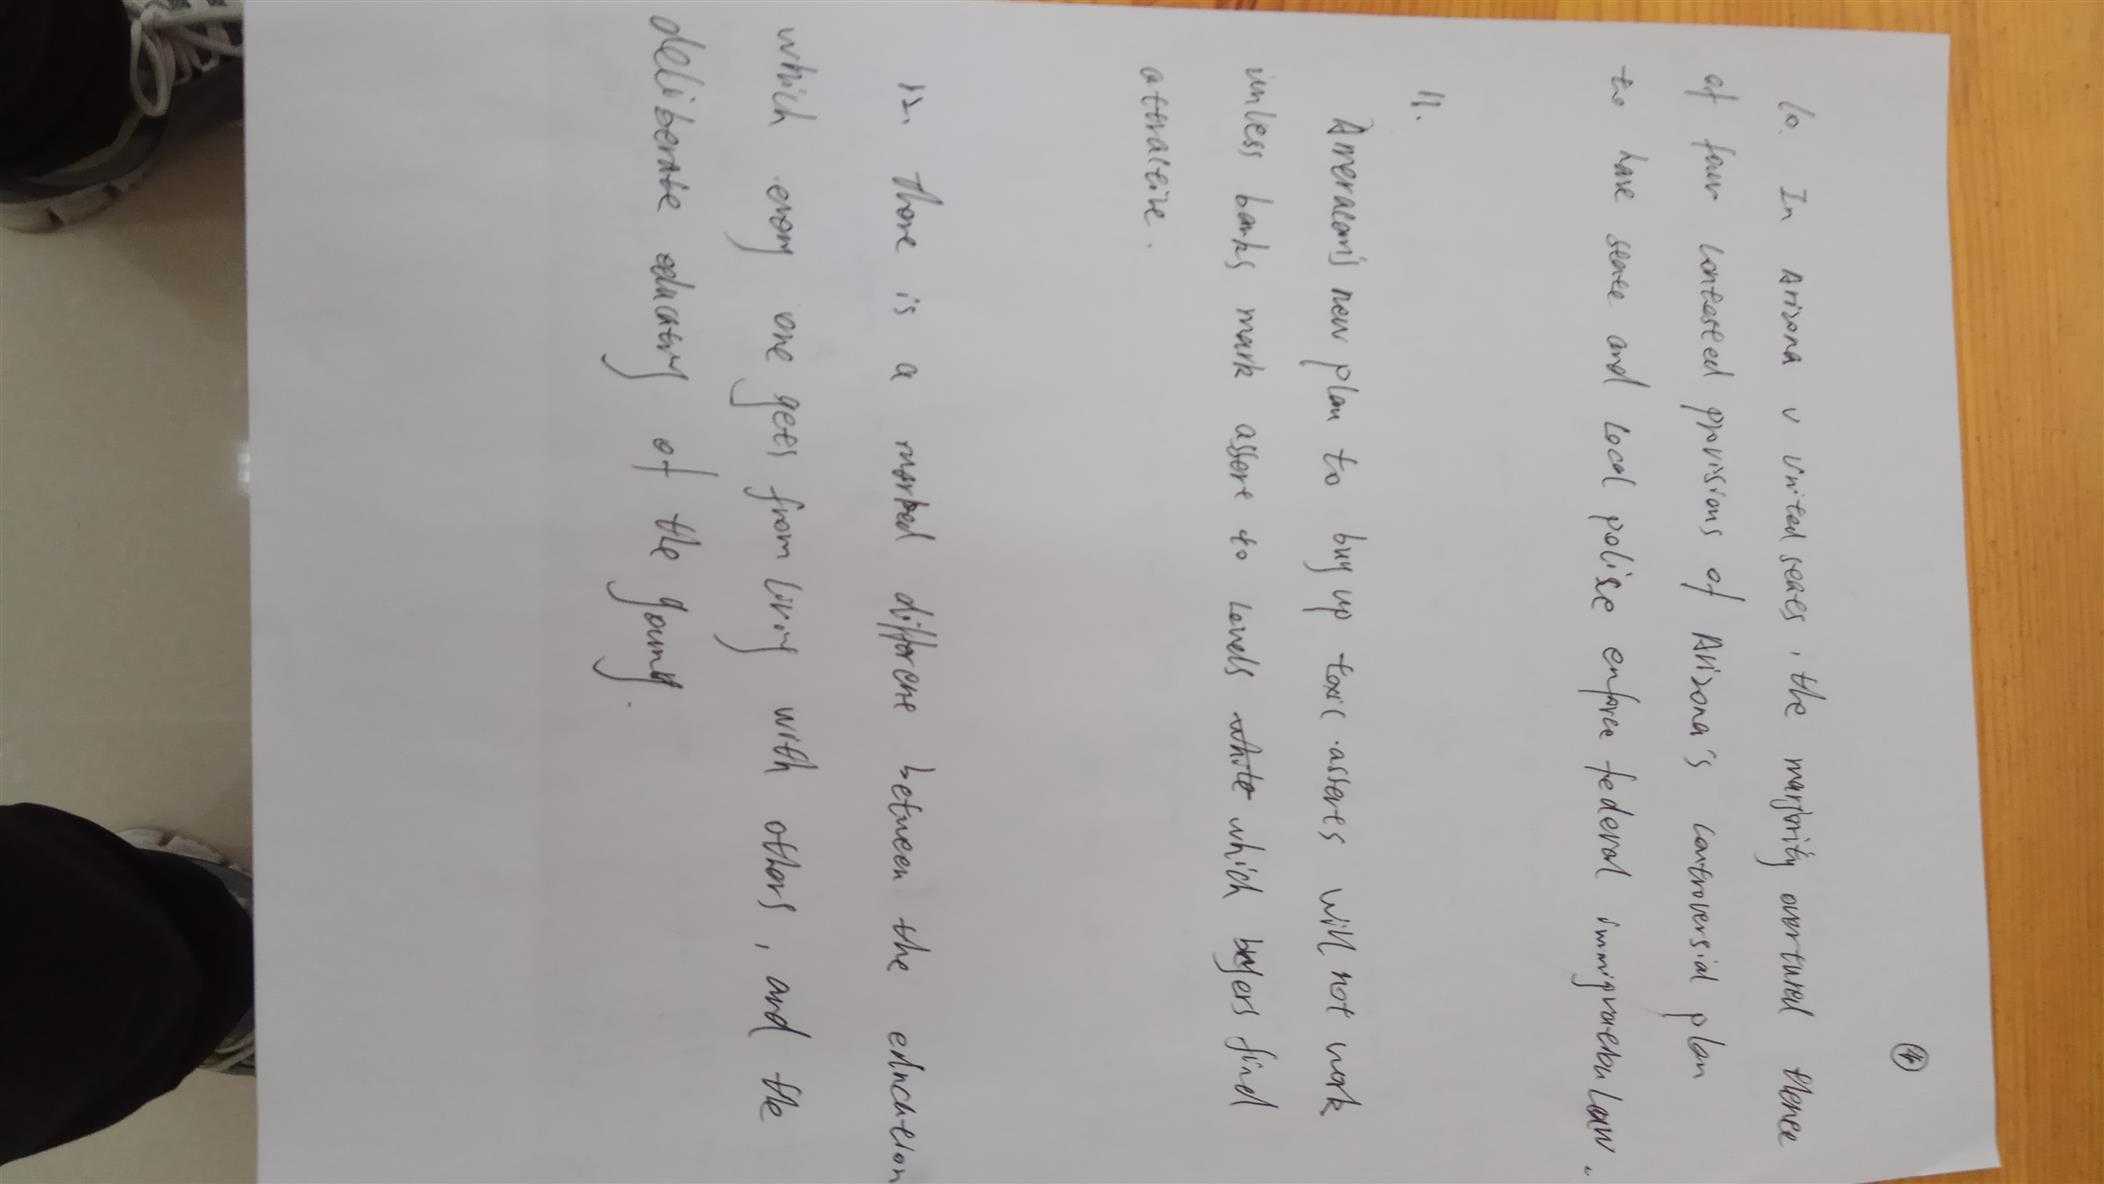 ④
10. In Arizona v United seates, the marjority overtured theree
of four contested provisions of Arizona's controversial plan
to have seate and Local polise enforce federal immigraeion Law.
11.
Ameracan's new plan to buy up toxic asseres will not work
unless banks mark assere to Levels white which buyers find
attractive.
12. there is a marked difference between the education
which every one gets from living with others, and the
deliberate educating of the young.